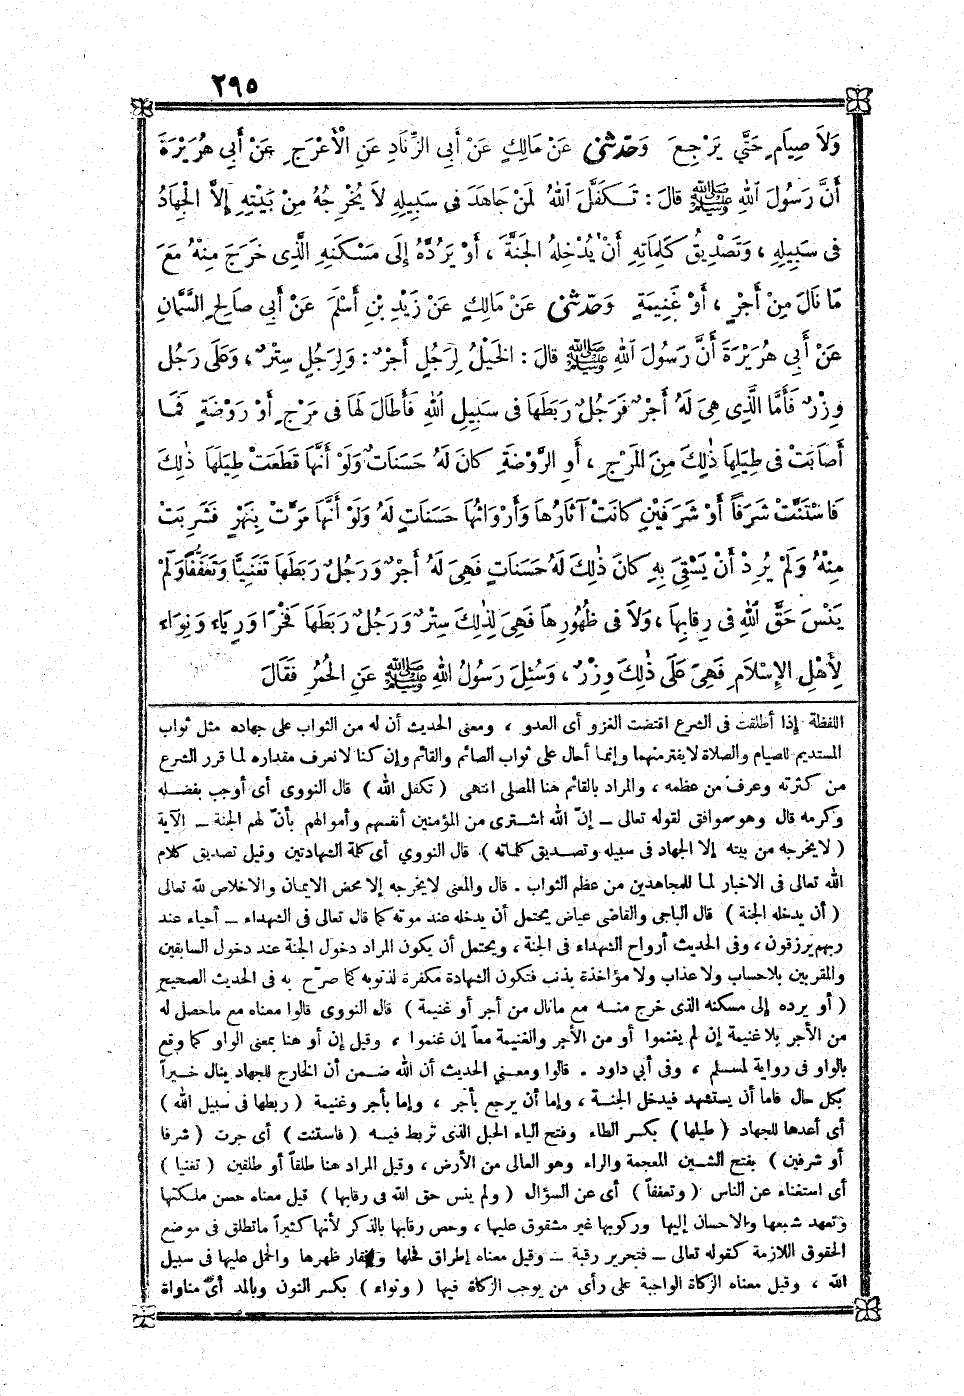 ٢٩٥
وَلاَ صِيَامٍ حَتَّي يَرْجِعَ وَحَدَّثَنِي عَنْ مَالِكٍ عَنْ أَبِى الزِّنَادِ عَنِ الْأَعْرَجِ عَنْ أَبِي هُرَيْرَةَ
أَنَّ رَسُولَ اللهِ ﷺ قالَ : تَكَفَّلَ اللهُ لِمَنْ جَاهَدَ فِى سَبِيلِهِ لاَ يُخْرِجُهُ مِنْ بَيْتِهِ إِلاَّ الْجِهَادُ
فِى سَبِيلِهِ ، وَتَصْدِيقُ كَلِمَاتِهِ أَنْ يُدْخِلَهُ الجَنَّةَ ، أَوْ يَرُدَّهُ إِلَى مَسْكَنِهِ الَّذِى خَرَجَ مِنْهُ مَعَ
مَا نَالَ مِنْ أَجْرٍ ، أَوْ غَنِيمَةٍ وَحَدَّثَنِي عَنْ مَالِكٍ عَنْ زَيْدِ بْنِ أَسْلَمَ عَنْ أَبِي صَالِحٍ السَّمَّانِ
عَنْ أَبِي هُرَيْرَةَ أَنَّ رَسُولَ اللهِ ﷺ قالَ : الخَيْلُ لِرَجُلٍ أَجْرٌ : وَلِرَجُلٍ سِتْرٌ ، وَعَلَى رَجُلٍ
وِزْرٌ فَأَمَّا الَّذِى هِىَ لَهُ أَجْرٌ فَرَجُلٌ رَبَطَهَا فِى سَبِيلِ اللهِ فَأَطَالَ لَهَا فِى مَرْجٍ أَوْ رَوْضَةٍ فَمَا
أَصَابَتْ فِى طِيَلِهَا ذٰلِكَ مِنَ المَرْجِ ، أَوِ الرَّوْضَةِ كَانَ لَهُ حَسَنَاتٌ وَلَوْ أَنَّهَا قَطَعَتْ طِيَلَهَا ذٰلِكَ
فَاسْتَنَّتْ شَرَفاً أَوْ شَرَفَيْنِ كَانَتْ آثَارُهَا وَأَرْوَاثُهَا حَسَنَاتٍ لَهُ وَلَوْ أَنَّهَا مَرَّتْ بِنَهَرٍ فَشَرِبَتْ
مِنْهُ وَلَمْ يُرِدْ أَنْ يَسْقِىَ بِهِ كَانَ ذٰلِكَ لَهُ حَسَنَاتٍ فَهِىَ لَهُ أَجْرٌ وَرَجُلٌ رَبَطَهَا تَغَنِيًّا وَتَعَفُّفاً وَلَمْ
يَنْسَ حَقَّ اللهِ فِى رِقَابِهَا ، وَلاَ فِى ظُهُورِهَا فَهِىَ لِذٰلِكَ سِتْرٌ وَرَجُلٌ رَبَطَهَا فَخْرًا وَرِيَاءً وَنِوَاءً
لِأَهْلِ الإِسْلاَمِ فَهِىَ عَلَى ذٰلِكَ وِزْرٌ ، وَسُئِلَ رَسُولُ اللهِ ﷺ عَنِ الْحُمُرِ فَقَالَ
اللفظة إذا أطلقت فى الشرع اقتضت الغزو أى العدو ، ومعنى الحديث أن له من الثواب على جهاده مثل ثواب
المستديم للصيام والصلاة لا يفتر منهما وإنما أحال على ثواب الصائم والقائم وإن كنا لا نعرف مقداره لما قرر الشرع
من كثرته وعرف من عظمه ، والمراد بالقائم هنا المصلى انتهى ( تكفل الله ) قال النووى أى أوجب بفضله
وكرمه قال وهو موافق لقوله تعالى ــ إنّ الله اشترى من المؤمنين أنفسهم وأموالهم بأنّ لهم الجنة ــ الآية
( لا يخرجه من بيته إلا الجهاد فى سبيله وتصديق كلماته ) . قال النووي أى كلمة الشهادتين وقيل تصديق كلام
الله تعالى فى الاخبار لما للمجاهدين من عظم الثواب . قال والمعنى لا يخرجه إلا محض الايمان والاخلاص لله تعالى
( أن يدخله الجنة ) قال الباجى والقاضى عياض يحتمل أن يدخله عند موته كما قال تعالى فى الشهداء ــ أحياء عند
ربهم يرزقون ، وفى الحديث أرواح الشهداء فى الجنة ، ويحتمل أن يكون المراد دخول الجنة عند دخول السابقين
والمقربين بلا حساب ولا عذاب ولا مؤاخذة بذنب فتكون الشهادة مكفرة لذنوبه كما صرّح به فى الحديث الصحيح
( أو يرده إلى مسكنه الذى خرج منه مع مانال من أجر أو غنيمة ) قال النووى قالوا معناه مع ماحصل له
من الأجر بلا غنيمة إن لم يغنموا أو من الأجر والغنيمة معاً إن غنموا ، وقيل إن أو هنا بمعنى الواو كما وقع
بالواو فى رواية لمسلم ، وفى أبي داود . قالوا ومعنى الحديث أن الله ضمن أن الخارج للجهاد ينال خيراً
بكل حال فاما أن يستشهد فيدخل الجنة ، وإما أن يرجع بأجر ، وإما بأجر وغنيمة ( ربطها فى سبيل الله )
أى أعدها للجهاد ( طيلها ) بكسر الطاء وفتح الياء الحبل الذى تربط فيه ( فاستنت ) أى جرت ( شرفا
أو شرفين ) بفتح الشين المعجمة والراء وهو العالى من الأرض ، وقيل المراد هنا طلقاً أو طلقين ( تغنيا )
أى استغناء عن الناس ( وتعففاً ) أى عن السؤال ( ولم ينس حق الله فى رقابها ) قيل معناه حسن ملكتها
وتعهد شبعها والاحسان إليها وركوبها غير مشقوق عليها ، وخص رقابها بالذكر لأنها كثيراً ماتطلق فى موضع
الحقوق اللازمة كقوله تعالى ــ فتحرير رقبة ــ وقيل معناه إطراق فحلها وإفقار ظهرها والحمل عليها فى سبيل
الله ، وقيل معناه الزكاة الواجبة على رأى من يوجب الزكاة فيها ( ونواء ) بكسر النون وبالمد أى مناواة